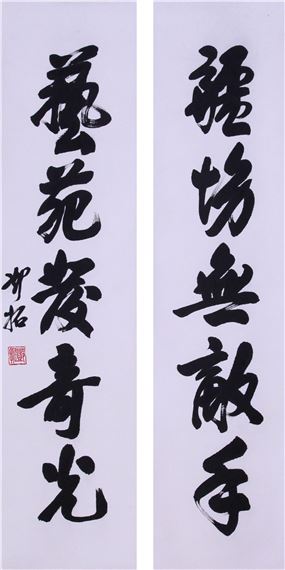 疆場無敵手
藝苑發奇光
拓